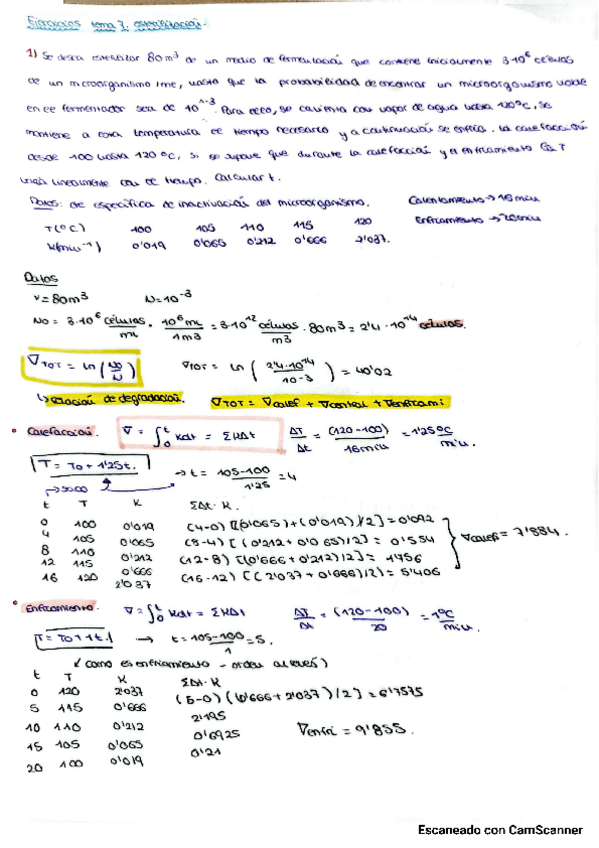 Ejercicios tema 7. esterilización.
1) Se desea esterilizar 80 m³ de un medio de fermentación que contiene inicialmente 3·10⁶ células
de un microorganismo /mL, hasta que la probabilidad de encontrar un microorganismo viable
en el fermentador sea de 10^-3. Para ello, se calienta con vapor de agua hasta 120°C, se
mantiene a esta temperatura el tiempo necesario y a continuación se enfría. La calefacción
desde 100 hasta 120°C, si se supone que durante la calefacción y el enfriamiento la T
varía linealmente con el tiempo. Calcular t.
Datos: de específica de inactivación del microorganismo. Calentamiento → 16 min
T(°C) 100 105 110 115 120 Enfriamiento → 20 min
K(min⁻¹) 0'019 0'065 0'212 0'666 2'037.
Datos
V = 80 m³ N = 10⁻³
No = 3·10⁶ células/mL · 10⁶ mL/1 m³ = 3·10¹² células/m³ · 80 m³ = 2'4·10¹⁴ células.
∇TOT = ln(No/N) ∇TOT = ln(2'4·10¹⁴/10⁻³) = 40'02
↳ Relación de degradación. ∇TOT = ∇calef + ∇contei + ∇enfriami
• Calefacción. ∇ = ∫₀ᵗ K dt = ΣKΔt ΔT/Δt = (120-100)/16 min = 1'25 °C/min.
T = To + 1'25t. → t = 105-100/1'25 = 4
t T K ΣΔt·K.
0 100 0'019 (4-0)[(0'065)+(0'019)/2] = 0'092
4 105 0'065 (8-4)[(0'212+0'065)/2] = 0'554
8 110 0'212 (12-8)[(0'666+0'212)/2] = 1'756
12 115 0'666 (16-12)[(2'037+0'666)/2] = 5'406
16 120 2'037
∇calef = 7'884.
• Enfriamiento. ∇ = ∫₀ᵗ K dt = ΣKΔt ΔT/Δt = (120-100)/20 = 1 °C/min.
T = To + 1t. → t = 105-100/1 = 5.
(como es enfriamiento - orden al revés)
t T K ΣΔt·K
0 120 2'037 (5-0)[(0'666+2'037)/2] = 6'7575
5 115 0'666 2'195
10 110 0'212 0'6925 ∇enfri = 9'855.
15 105 0'065 0'21
20 100 0'019
Escaneado con CamScanner